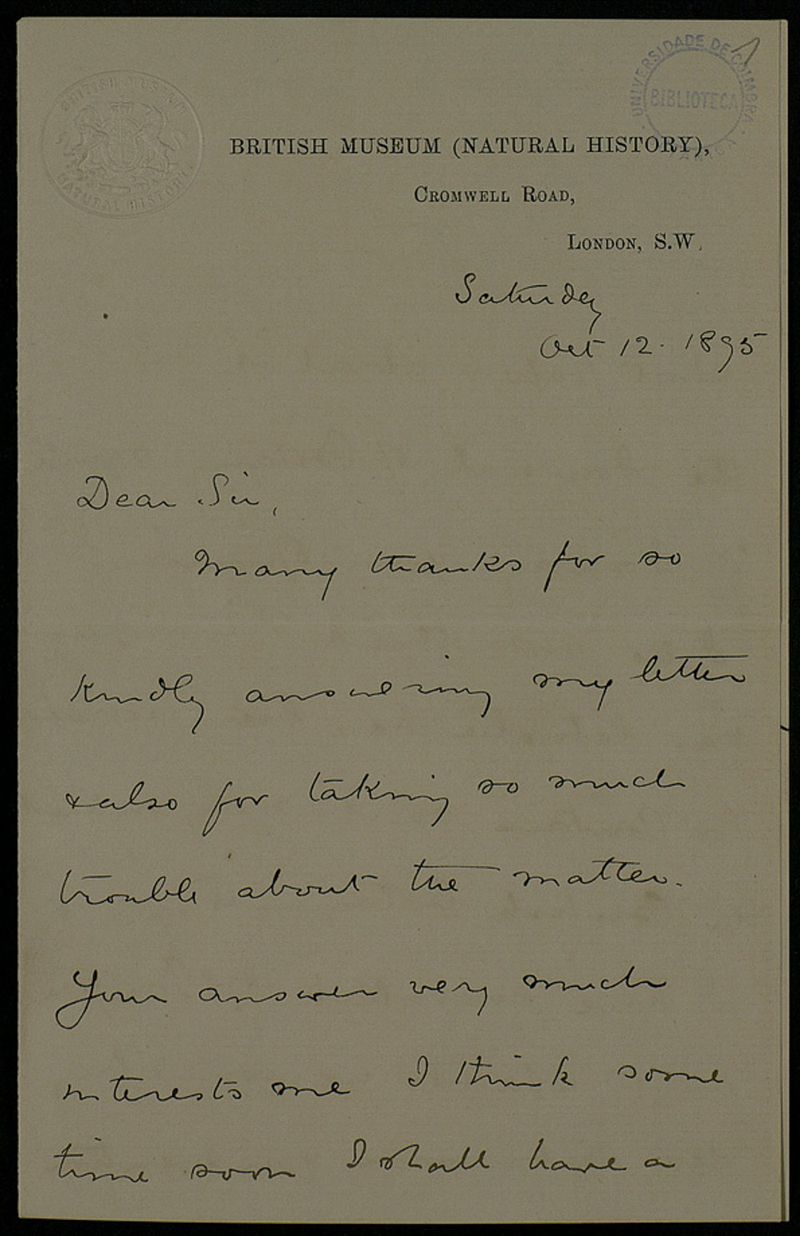 BRITISH MUSEUM
NATURAL HISTORY
UNIVERSIDADE DE COIMBRA
BIBLIOTECA
1
BRITISH MUSEUM (NATURAL HISTORY),
CROMWELL ROAD,
LONDON, S.W.
Saturday
Oct 12. 1895
Dear Sir,
Many thanks for so
kindly answering my letter
& also for taking so much
trouble about the matter.
Your answer very much
interests me I think some
time soon I shall have a